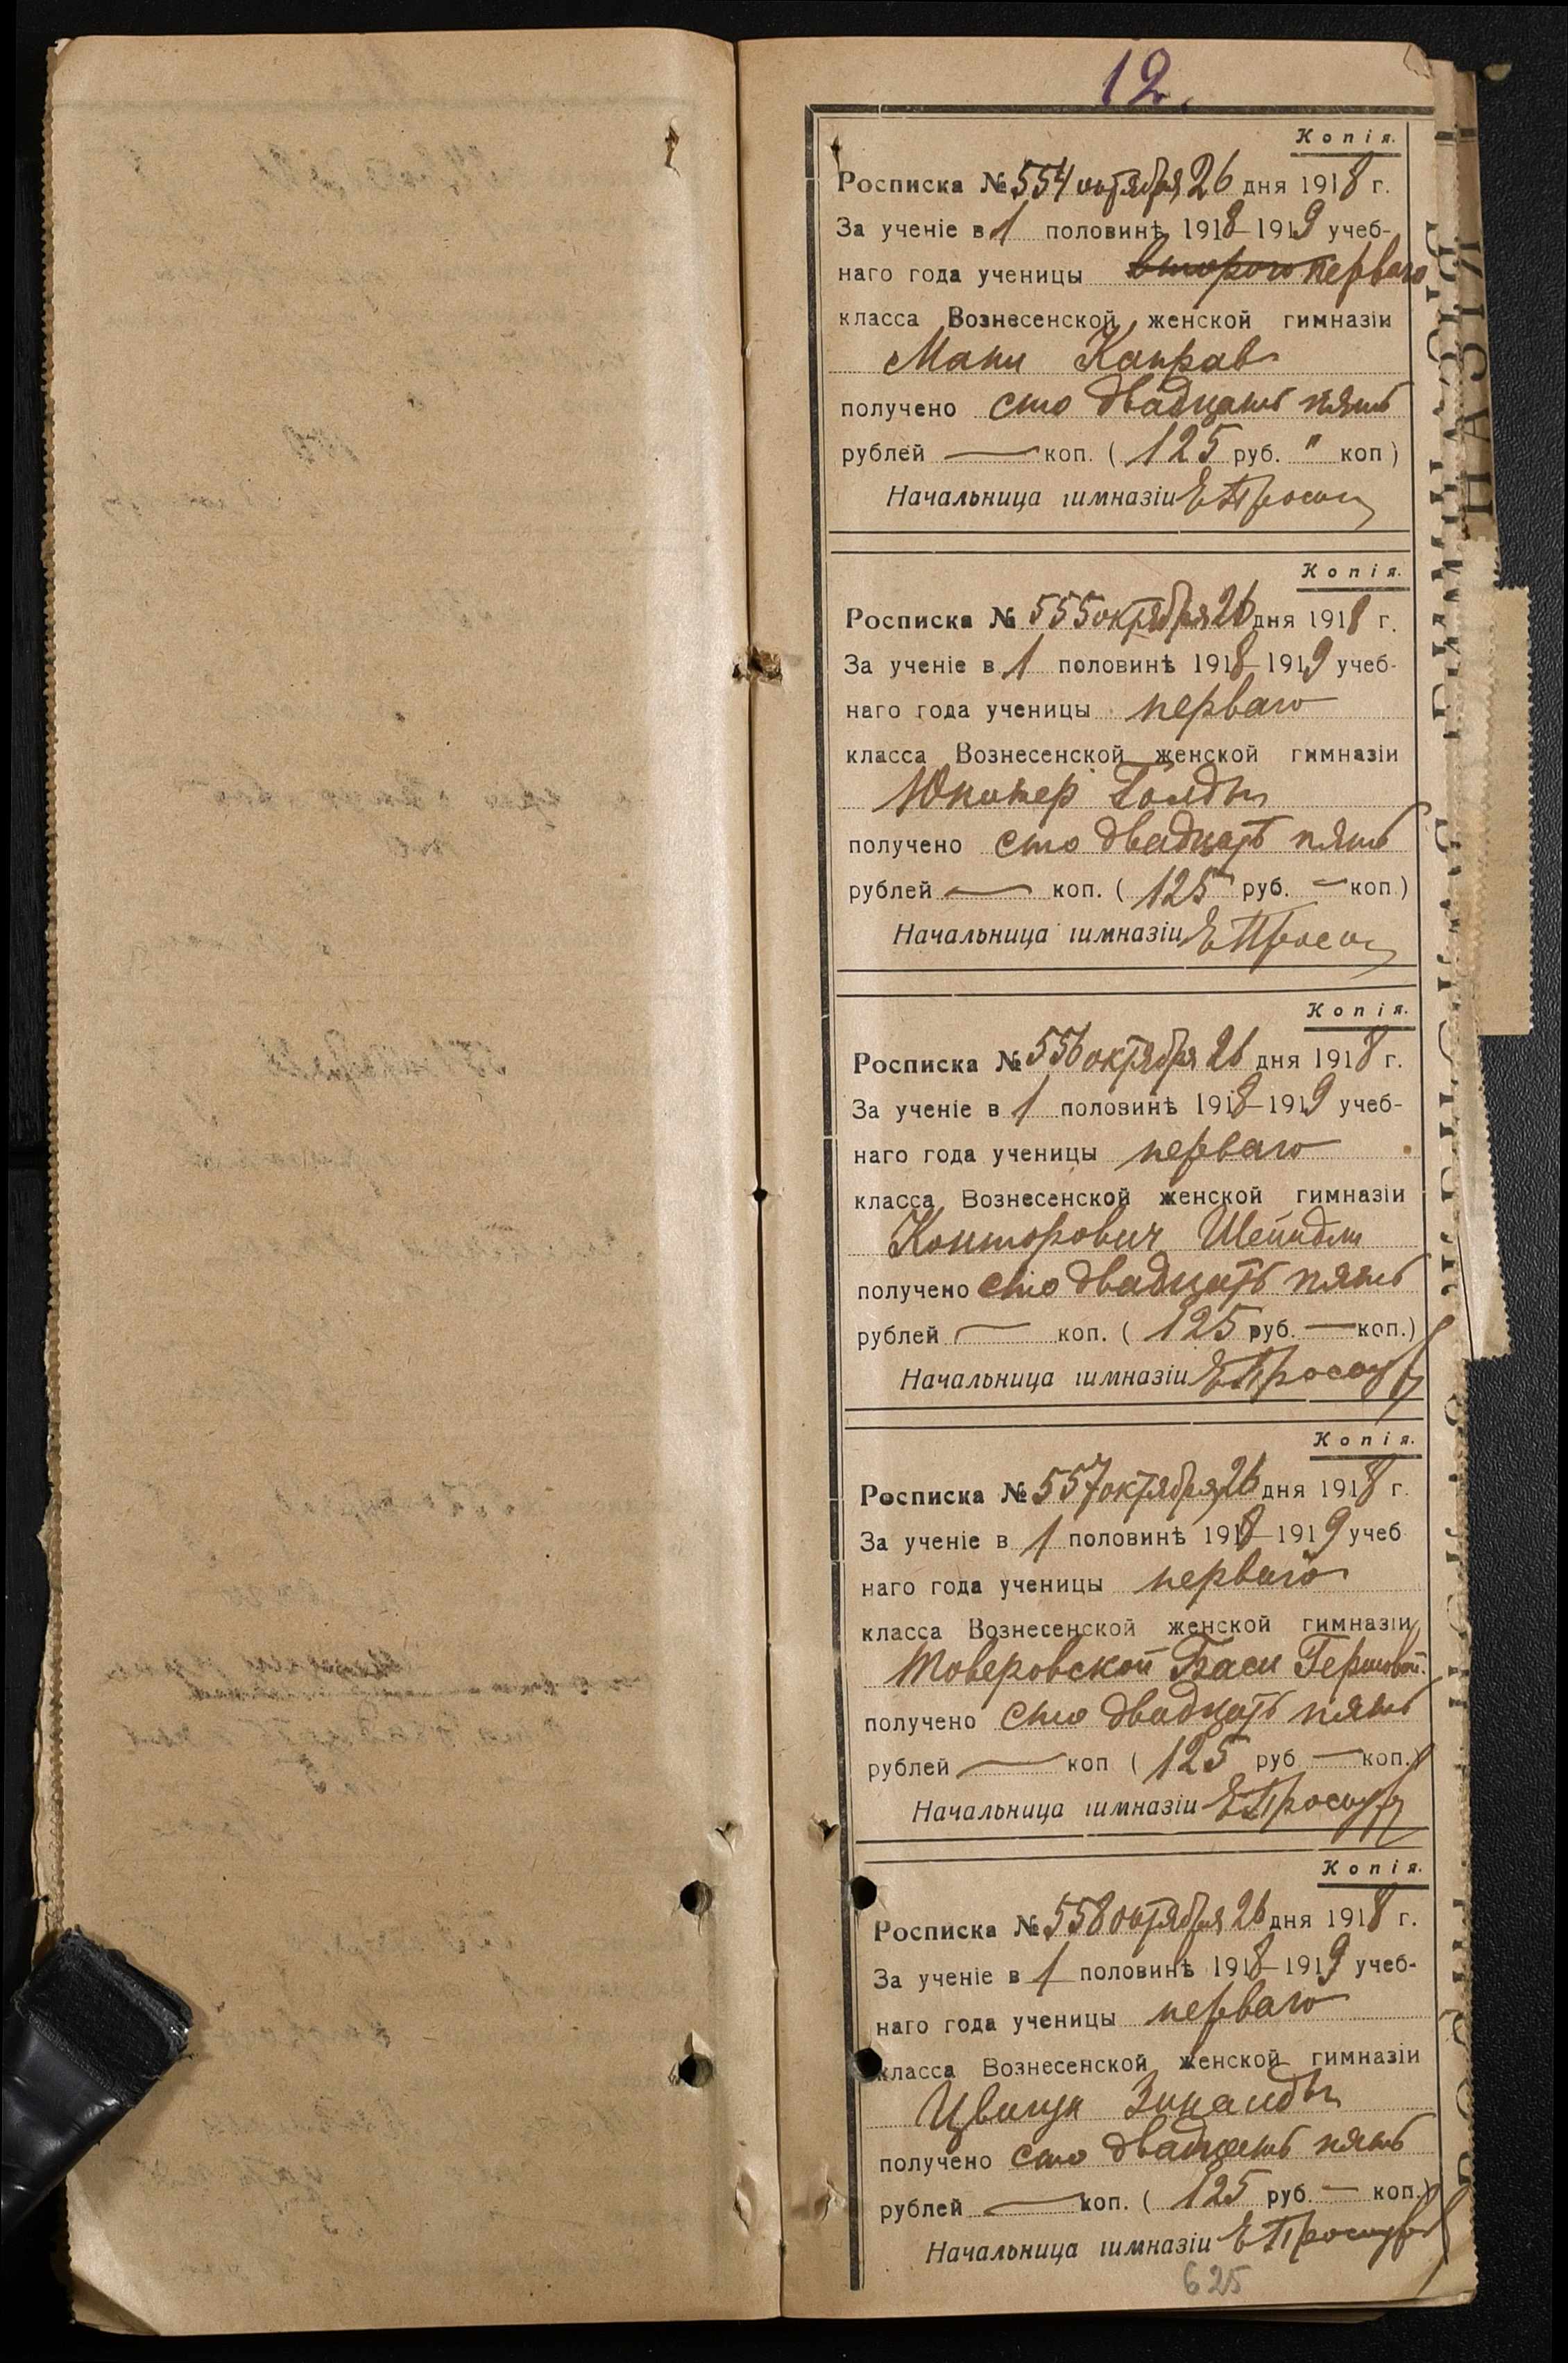 12.
Копія.
Росписка № 554 октября 26 дня 1918 г.
За ученіе в 1 половинѣ 1918-1919 учеб-
наго года ученицы второго перваго
класса Вознесенской женской гимназіи
Мани
получено сто двадцать пять
рублей — коп. ( 125 руб. " коп )
Начальница гимназіи
Копія.
Росписка № 555 октября 26 дня 1918 г.
За ученіе в 1 половинѣ 1918-1919 учеб-
наго года ученицы перваго
класса Вознесенской женской гимназіи
Юпитер Голды
получено сто двадцать пять
рублей — коп. ( 125 руб. — коп.)
Начальница гимназіи
Копія.
Росписка № 556 октября 26 дня 1918 г.
За ученіе в 1 половинѣ 1918-1919 учеб-
наго года ученицы перваго
класса Вознесенской женской гимназіи
Конторович Шейндли
получено сто двадцать пять
рублей — коп. ( 125 руб. — коп.)
Начальница гимназіи
Копія.
Росписка № 557 октября 26 дня 1918 г.
За ученіе в 1 половинѣ 1918-1919 учеб
наго года ученицы перваго
класса Вознесенской женской гимназіи
Товеровской Баси Гершовой.
получено сто двадцать пять
рублей — коп ( 125 руб — коп.)
Начальница гимназіи
Копія.
Росписка № 558 октября 26 дня 1918 г.
За ученіе в 1 половинѣ 1918-1919 учеб-
наго года ученицы перваго
класса Вознесенской женской гимназіи
Зинаиды
получено сто двадцать пять
рублей — коп. ( 125 руб. — коп.)
Начальница гимназіи
625